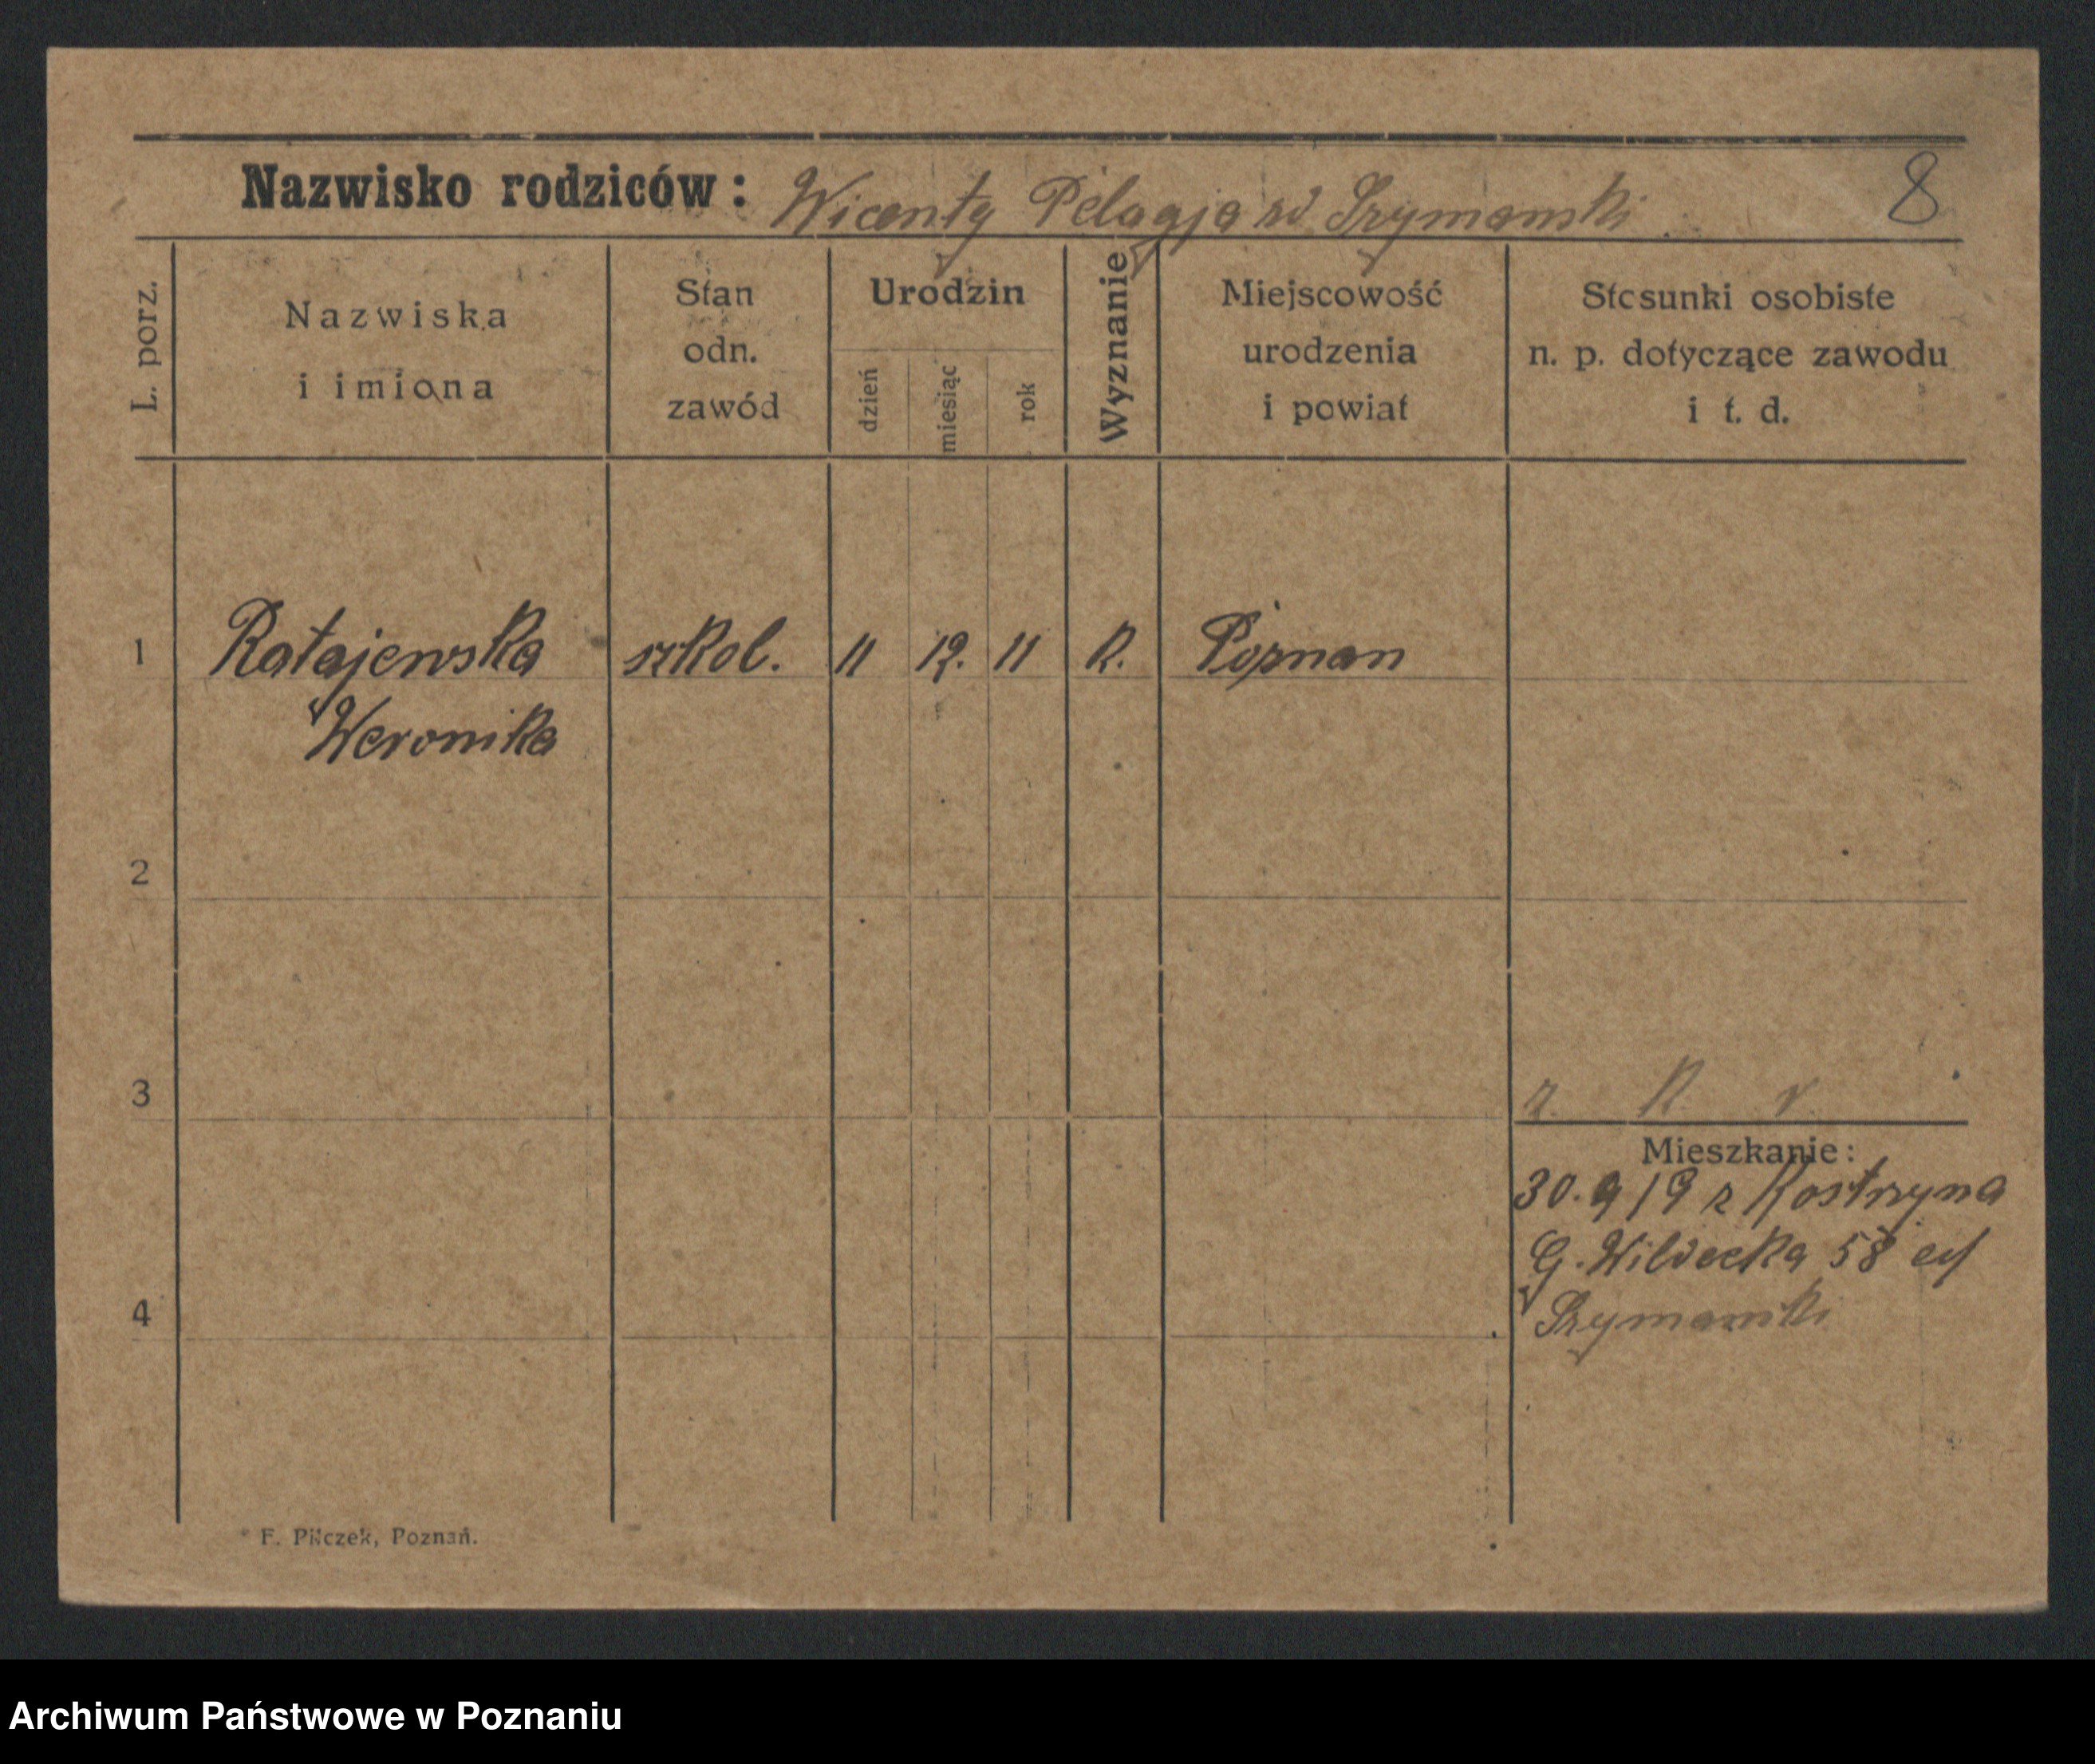 Nazwisko rodziców: Wicenty Pelagja zd Szymanski 8
L. porz.
Nazwiska
i imiona
Stan
odn.
zawód
Urodzin
dzień
miesiąc
rok
Wyznanie
Miejscowość
urodzenia
i powiat
Stosunki osobiste
n. p. dotyczące zawodu
i t. d.
1 Ratajewska szkol. 11 12. 11 K. Poznan
Weronika
2
3
Mieszkanie:
30. 9 19 z Kostrzyna
G. Wildecka 58
4 Szymanski
F. Pilczek, Poznań.
Archiwum Państwowe w Poznaniu